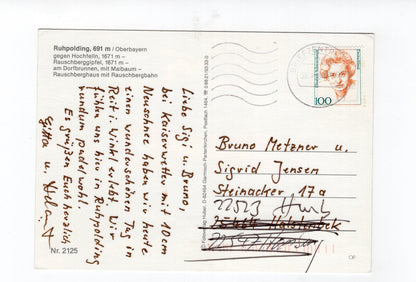 Ruhpolding, 691 m / Oberbayern
gegen Hochfelln, 1671 m –
Rauschberggipfel, 1671 m –
am Dorfbrunnen, mit Maibaum –
Rauschberghaus mit Rauschbergbahn
Liebe Sigi u. Bruno,
bei Kaiserwetter mit 10 cm
Neuschnee haben wir heute
einen wunderschönen Tag in
Reit i. Winkl erlebt. Wir
fühlen uns hier in Ruhpolding
rundum pudelwohl.
Es grüßen Euch herzlich
Gitta u.
Nr. 2125
100
Bruno Metzner u.
Sigrid Jensen
Steinacker 17a
22523
25464 Halstenbek
22547
OP